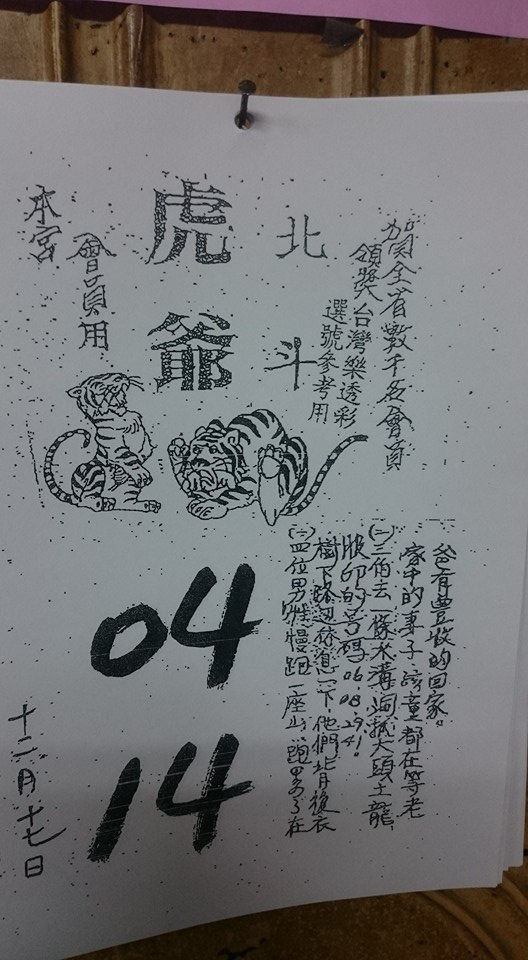 賀全省數千名會員
領獎台灣樂透彩
選號參考用
北斗
虎爺
會員用
本宮
(一)四位男性慢跑一座山、跑累了在
樹下路邊休息一下他們背後衣
服印的号碼06.08.29.41。
(二)三角去一條水溝淘抓大頭土龍
家中的妻子孩童都在等老
爸有豐收的回家。
04
14
十二月十七日